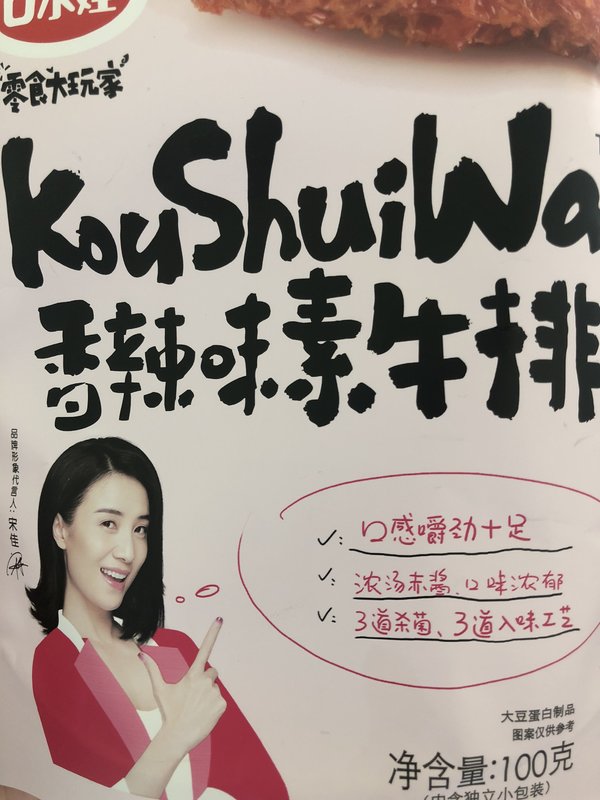 口水娃
零食大玩家
KouShuiWa
香辣味素牛排
品牌形象代言人:宋佳
✓: 口感嚼劲十足
✓: 浓汤赤酱、口味浓郁
✓: 3道杀菌、3道入味工艺
大豆蛋白制品
图案仅供参考
净含量:100克
(内含独立小包装)